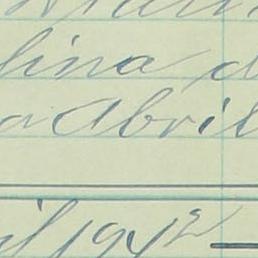 lina d
a Abril
il 1942